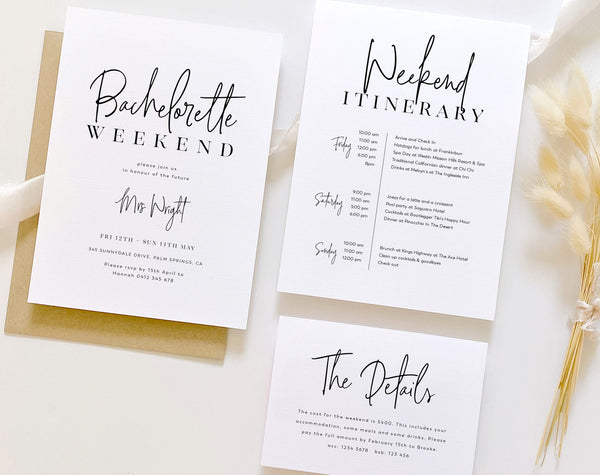 Bachelorette
WEEKEND
please join us
in honour of the future
Mrs Wright
FRI 12TH - SUN 14TH MAY
345 SUNNYDALE DRIVE, PALM SPRINGS, CA
Please rsvp by 15th April to
Hannah 0412 345 678
Weekend
ITINERARY
Friday
10:00 am
11:00 am
12:00 pm
2:00 pm
6:00 pm
8pm
Arrive and Check In
Hotdogs for lunch at Frankinbun
Spa Day at Westin Mission Hills Resort & Spa
Traditional Californian dinner at Chi Chi
Drinks at Melvyn's at The Ingleside Inn
Saturday
9:00 pm
11:00 am
5:00 pm
6:00 pm
Joeys for a latte and a croissant
Pool party at Saguaro Hotel
Cocktails at Bootlegger Tiki's Happy Hour
Dinner at Pinocchio In The Desert
Sunday
10:00 am
11:00 am
12:00 pm
Brunch at Kings Highway at The Ace Hotel
Clean up cocktails & goodbyes
Check out
The Details
The cost for the weekend is $600. This includes your
accommodation, some meals and some dinners. Please
pay the full amount by February 15th to Brooke.
acc: 1234 5678 bsb: 123 456